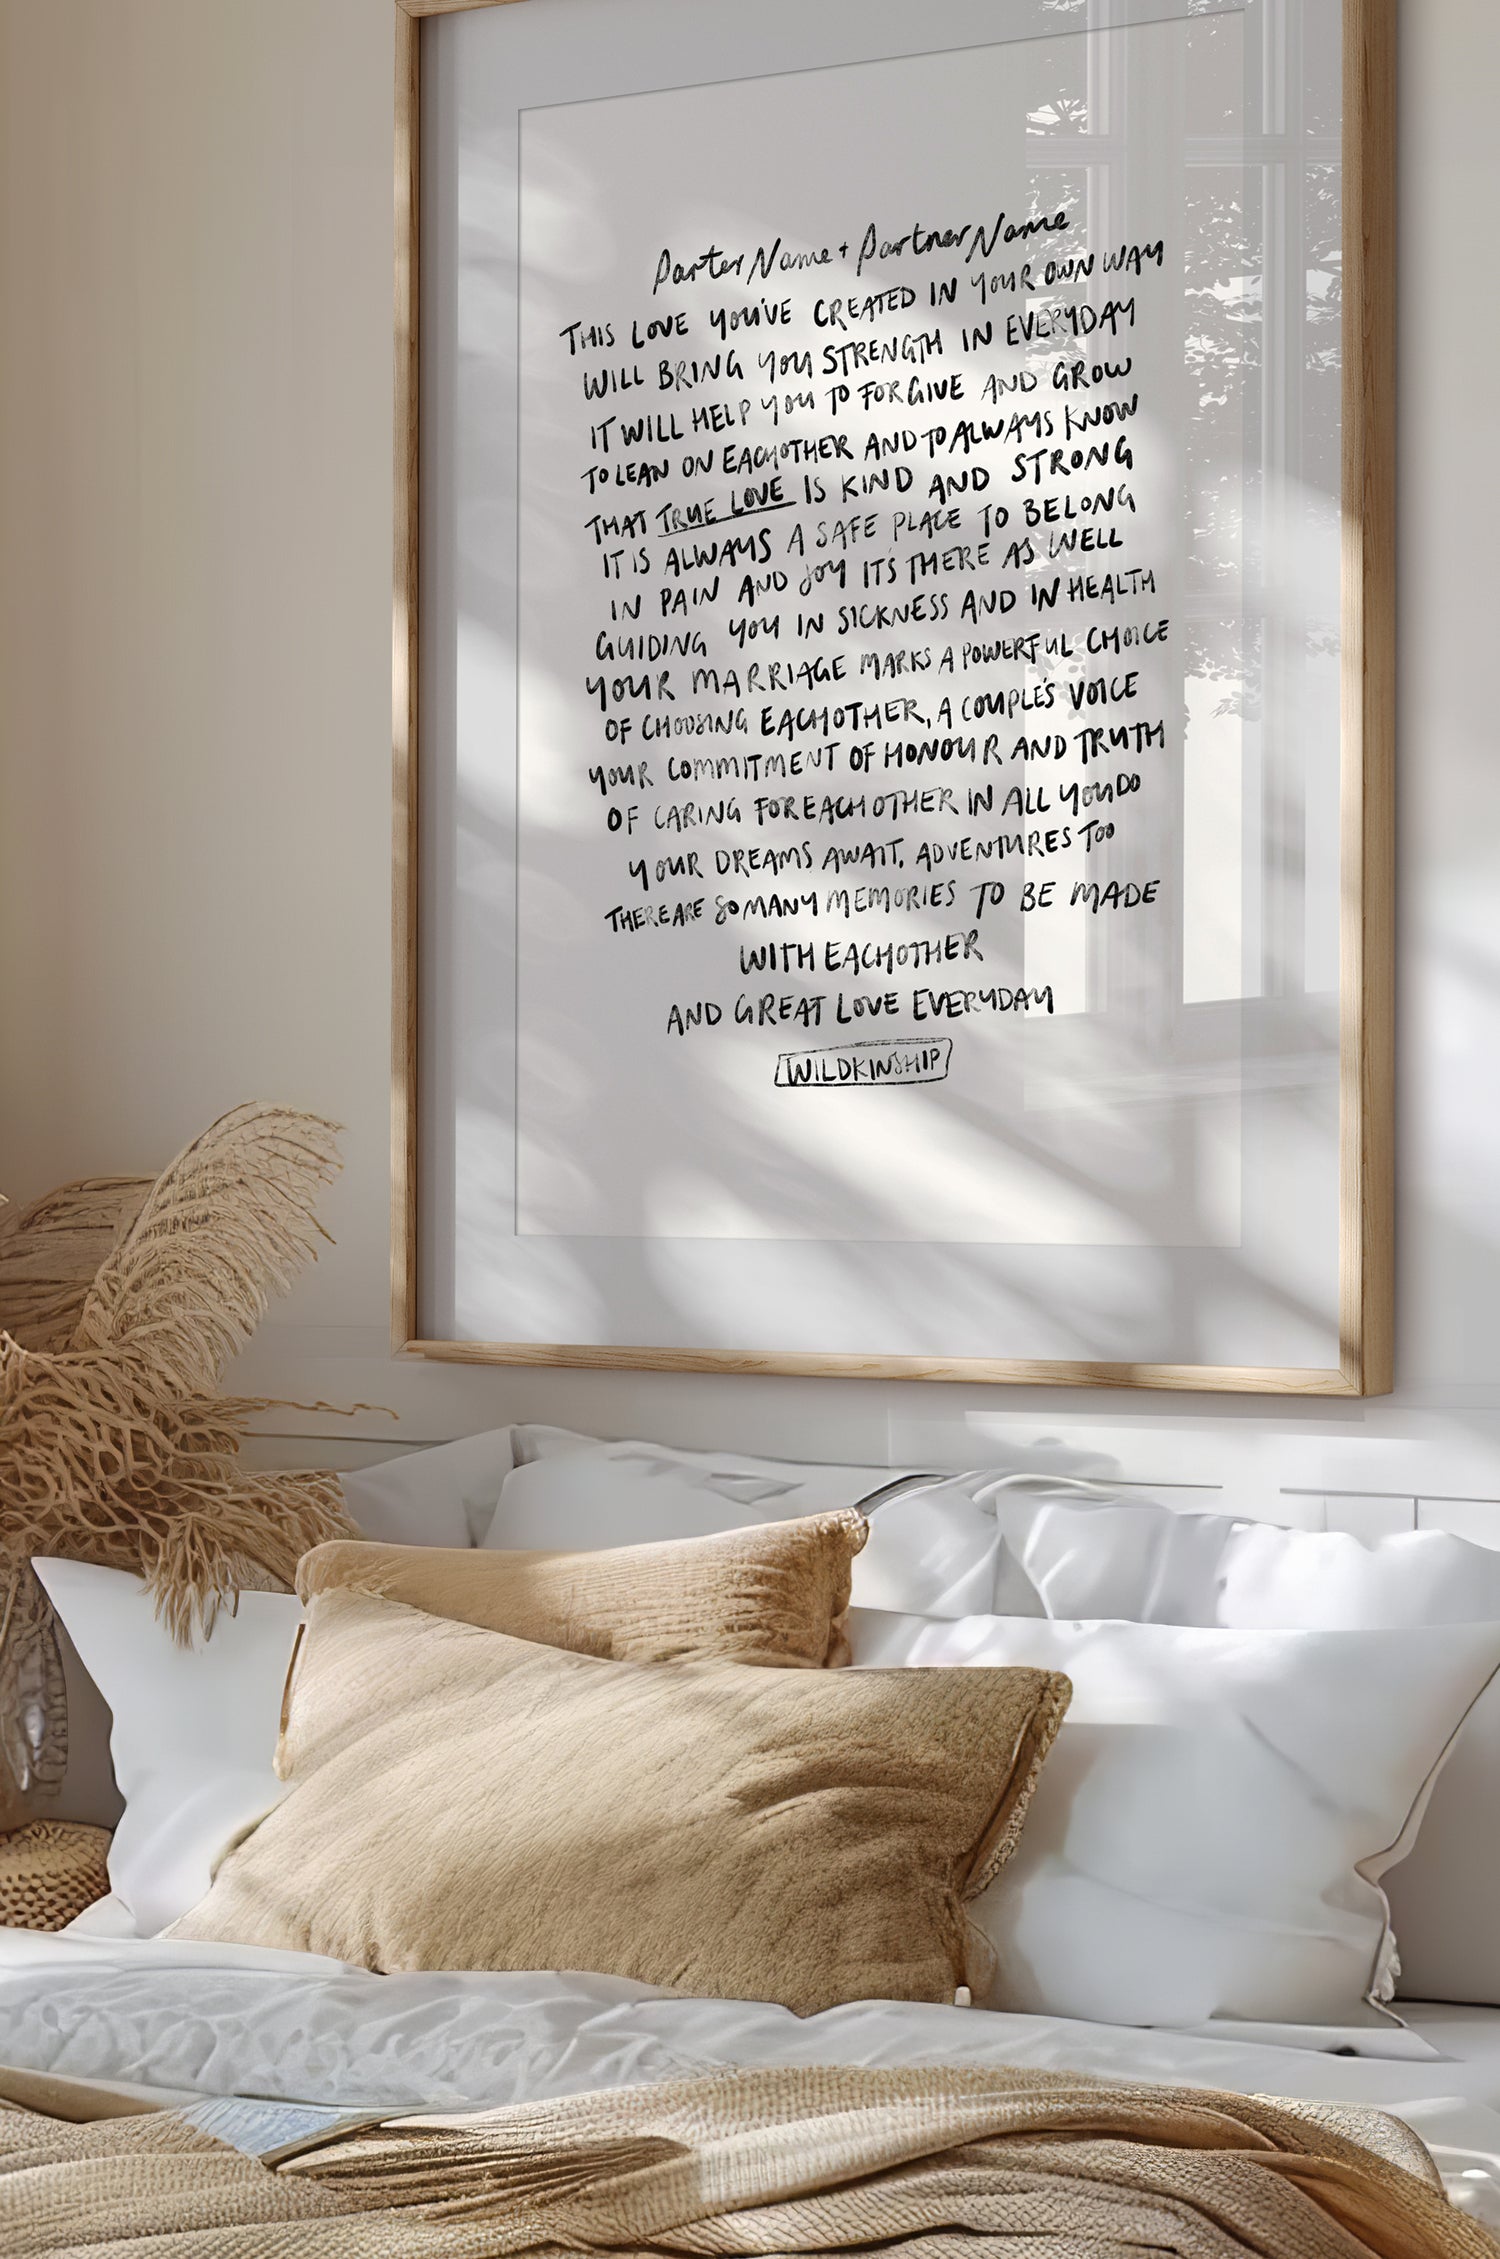 Parter Name + Partner Name
THIS LOVE YOU'VE CREATED IN YOUR OWN WAY
WILL BRING YOU STRENGTH IN EVERYDAY
IT WILL HELP YOU TO FORGIVE AND GROW
TO LEAN ON EACHOTHER AND TO ALWAYS KNOW
THAT TRUE LOVE IS KIND AND STRONG
IT IS ALWAYS A SAFE PLACE TO BELONG
IN PAIN AND JOY IT'S THERE AS WELL
GUIDING YOU IN SICKNESS AND IN HEALTH
YOUR MARRIAGE MARKS A POWERFUL CHOICE
OF CHOOSING EACHOTHER, A COUPLE'S VOICE
YOUR COMMITMENT OF HONOUR AND TRUTH
OF CARING FOR EACHOTHER IN ALL YOU DO
YOUR DREAMS AWAIT, ADVENTURES TOO
THERE ARE SO MANY MEMORIES TO BE MADE
WITH EACHOTHER
AND GREAT LOVE EVERYDAY
WILDKINSHIP